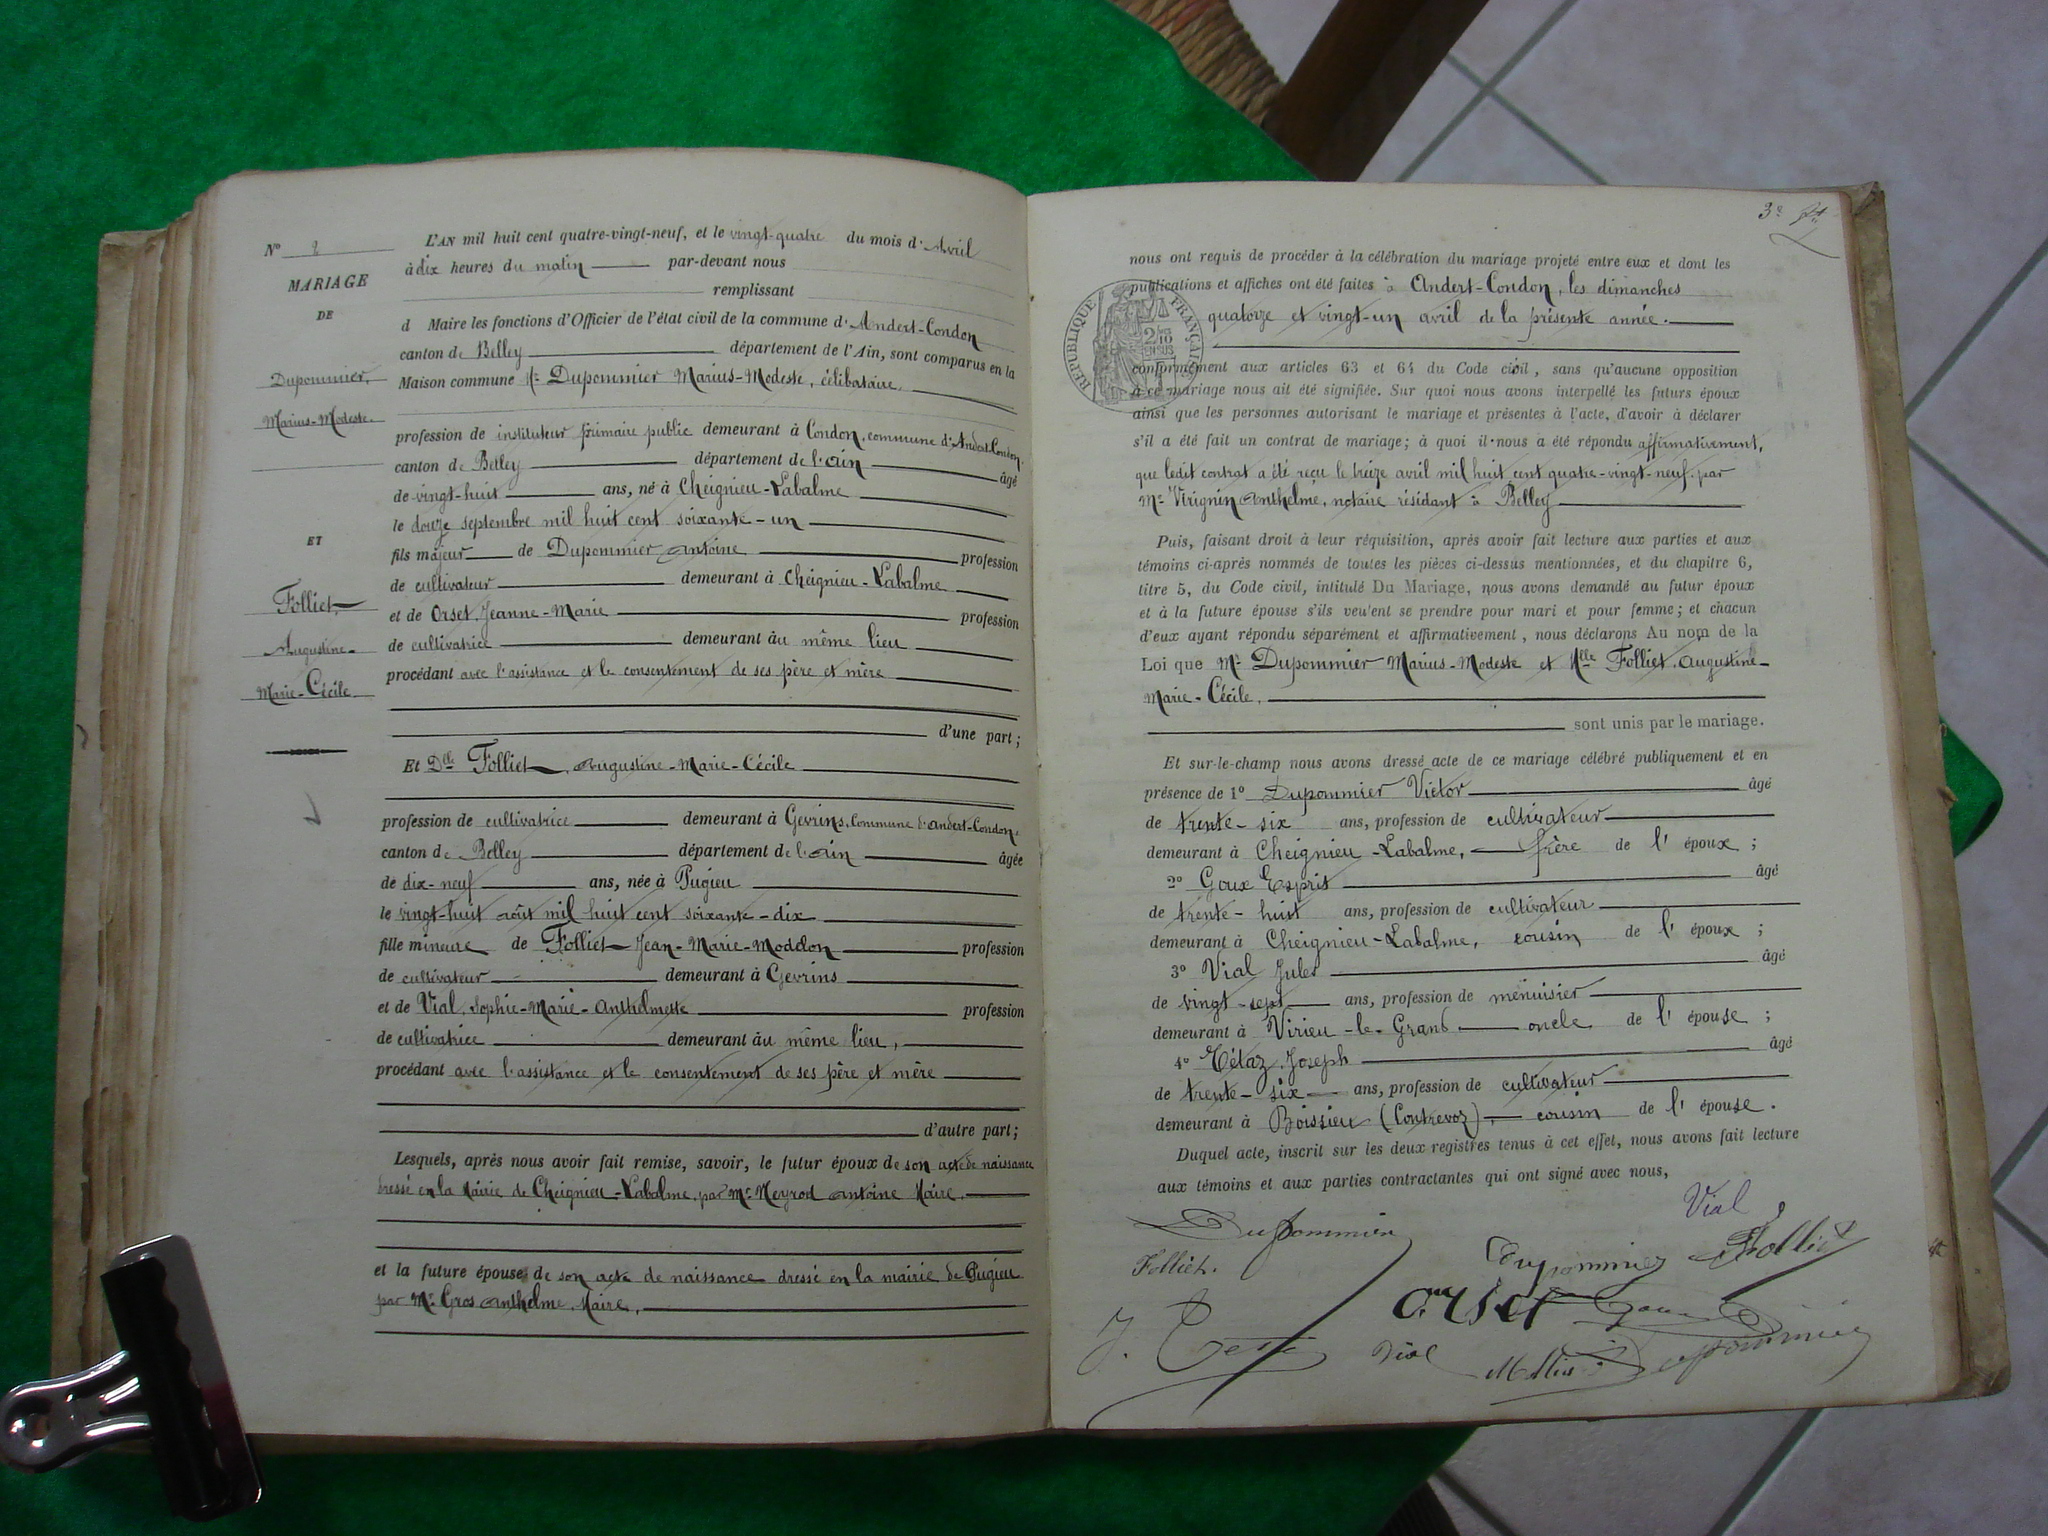 N° 2
MARIAGE
DE
Dupommier,
Marius-Modeste.
ET
Folliet,
Augustine-
Marie-Cécile.
L'AN mil huit cent quatre-vingt-neuf, et le vingt-quatre du mois d'Avril
à dix heures du matin par-devant nous
remplissant
d Maire les fonctions d'Officier de l'état civil de la commune d'Andert-Condon
canton de Belley département de l'Ain, sont comparus en la
Maison commune Mr Dupommier Marius-Modeste, célibataire.
profession de instituteur primaire public demeurant à Condon, commune d'Andert-Condon,
canton de Belley département de l'Ain âgé
de vingt-huit ans, né à Cheignieu-Labalme
le douze septembre mil huit cent soixante-un
fils majeur de Dupommier Antoine profession
de cultivateur demeurant à Cheignieu-Labalme
et de Orset Jeanne-Marie profession
de cultivatrice demeurant àu même lieu
procédant avec l'assistance et le consentement de ses père et mère
d'une part;
Et Dlle Folliet, Augustine-Marie-Cécile
profession de cultivatrice demeurant à Gevrins, Commune d'Andert-Condon,
canton de Belley département de l'Ain âgée
de dix-neuf ans, née à Pugieu
le vingt-huit août mil huit cent soixante-dix
fille mineure de Folliet Jean-Marie-Modelon profession
de cultivateur demeurant à Gevrins
et de Vial, Sophie-Marie-Anthelmette profession
de cultivatrice demeurant àu même lieu,
procédant avec l'assistance et le consentement de ses père et mère
d'autre part;
Lesquels, après nous avoir fait remise, savoir, le futur époux de son acte de naissance
dressé en la Mairie de Cheignieu-Labalme, par Mr Neyrod Antoine Maire,
et la future épouse de son acte de naissance dressé en la mairie de Pugieu
par Mr Gros Anthelme, Maire,
3e
nous ont requis de procéder à la célébration du mariage projeté entre eux et dont les
publications et affiches ont été faites à Andert-Condon, les dimanches
quatorze et vingt-un avril de la présente année.
RÉPUBLIQUE FRANÇAISE
2/10 EN SUS
conformément aux articles 63 et 64 du Code civil, sans qu'aucune opposition
à ce mariage nous ait été signifiée. Sur quoi nous avons interpellé les futurs époux
ainsi que les personnes autorisant le mariage et présentes à l'acte, d'avoir à déclarer
s'il a été fait un contrat de mariage; à quoi il nous a été répondu affirmativement,
que ledit contrat a été reçu le treize avril mil huit cent quatre-vingt-neuf par
Me Virignin Anthelme, notaire résidant à Belley
Puis, faisant droit à leur réquisition, après avoir fait lecture aux parties et aux
témoins ci-après nommés de toutes les pièces ci-dessus mentionnées, et du chapitre 6,
titre 5, du Code civil, intitulé Du Mariage, nous avons demandé au futur époux
et à la future épouse s'ils veulent se prendre pour mari et pour femme; et chacun
d'eux ayant répondu séparément et affirmativement, nous déclarons Au nom de la
Loi que Mr Dupommier Marius-Modeste et Mlle Folliet, Augustine-
Marie-Cécile,
sont unis par le mariage.
Et sur-le-champ nous avons dressé acte de ce mariage célébré publiquement et en
présence de 1° Dupommier Victor âgé
de trente-six ans, profession de cultivateur
demeurant à Cheignieu-Labalme, frère de l'époux;
2° Goux Esprit âgé
de trente-huit ans, profession de cultivateur
demeurant à Cheignieu-Labalme, cousin de l'époux;
3° Vial Jules âgé
de vingt-sept ans, profession de menuisier
demeurant à Virieu-le-Grand oncle de l'épouse;
4° Tétaz Joseph âgé
de trente-six ans, profession de cultivateur
demeurant à Boissieu (Contrevoz), cousin de l'épouse.
Duquel acte, inscrit sur les deux registres tenus à cet effet, nous avons fait lecture
aux témoins et aux parties contractantes qui ont signé avec nous,
Vial
Dupommier
Folliet.
Dupommier Folliet
Orset Goux
J. Teta Vial Dupommier